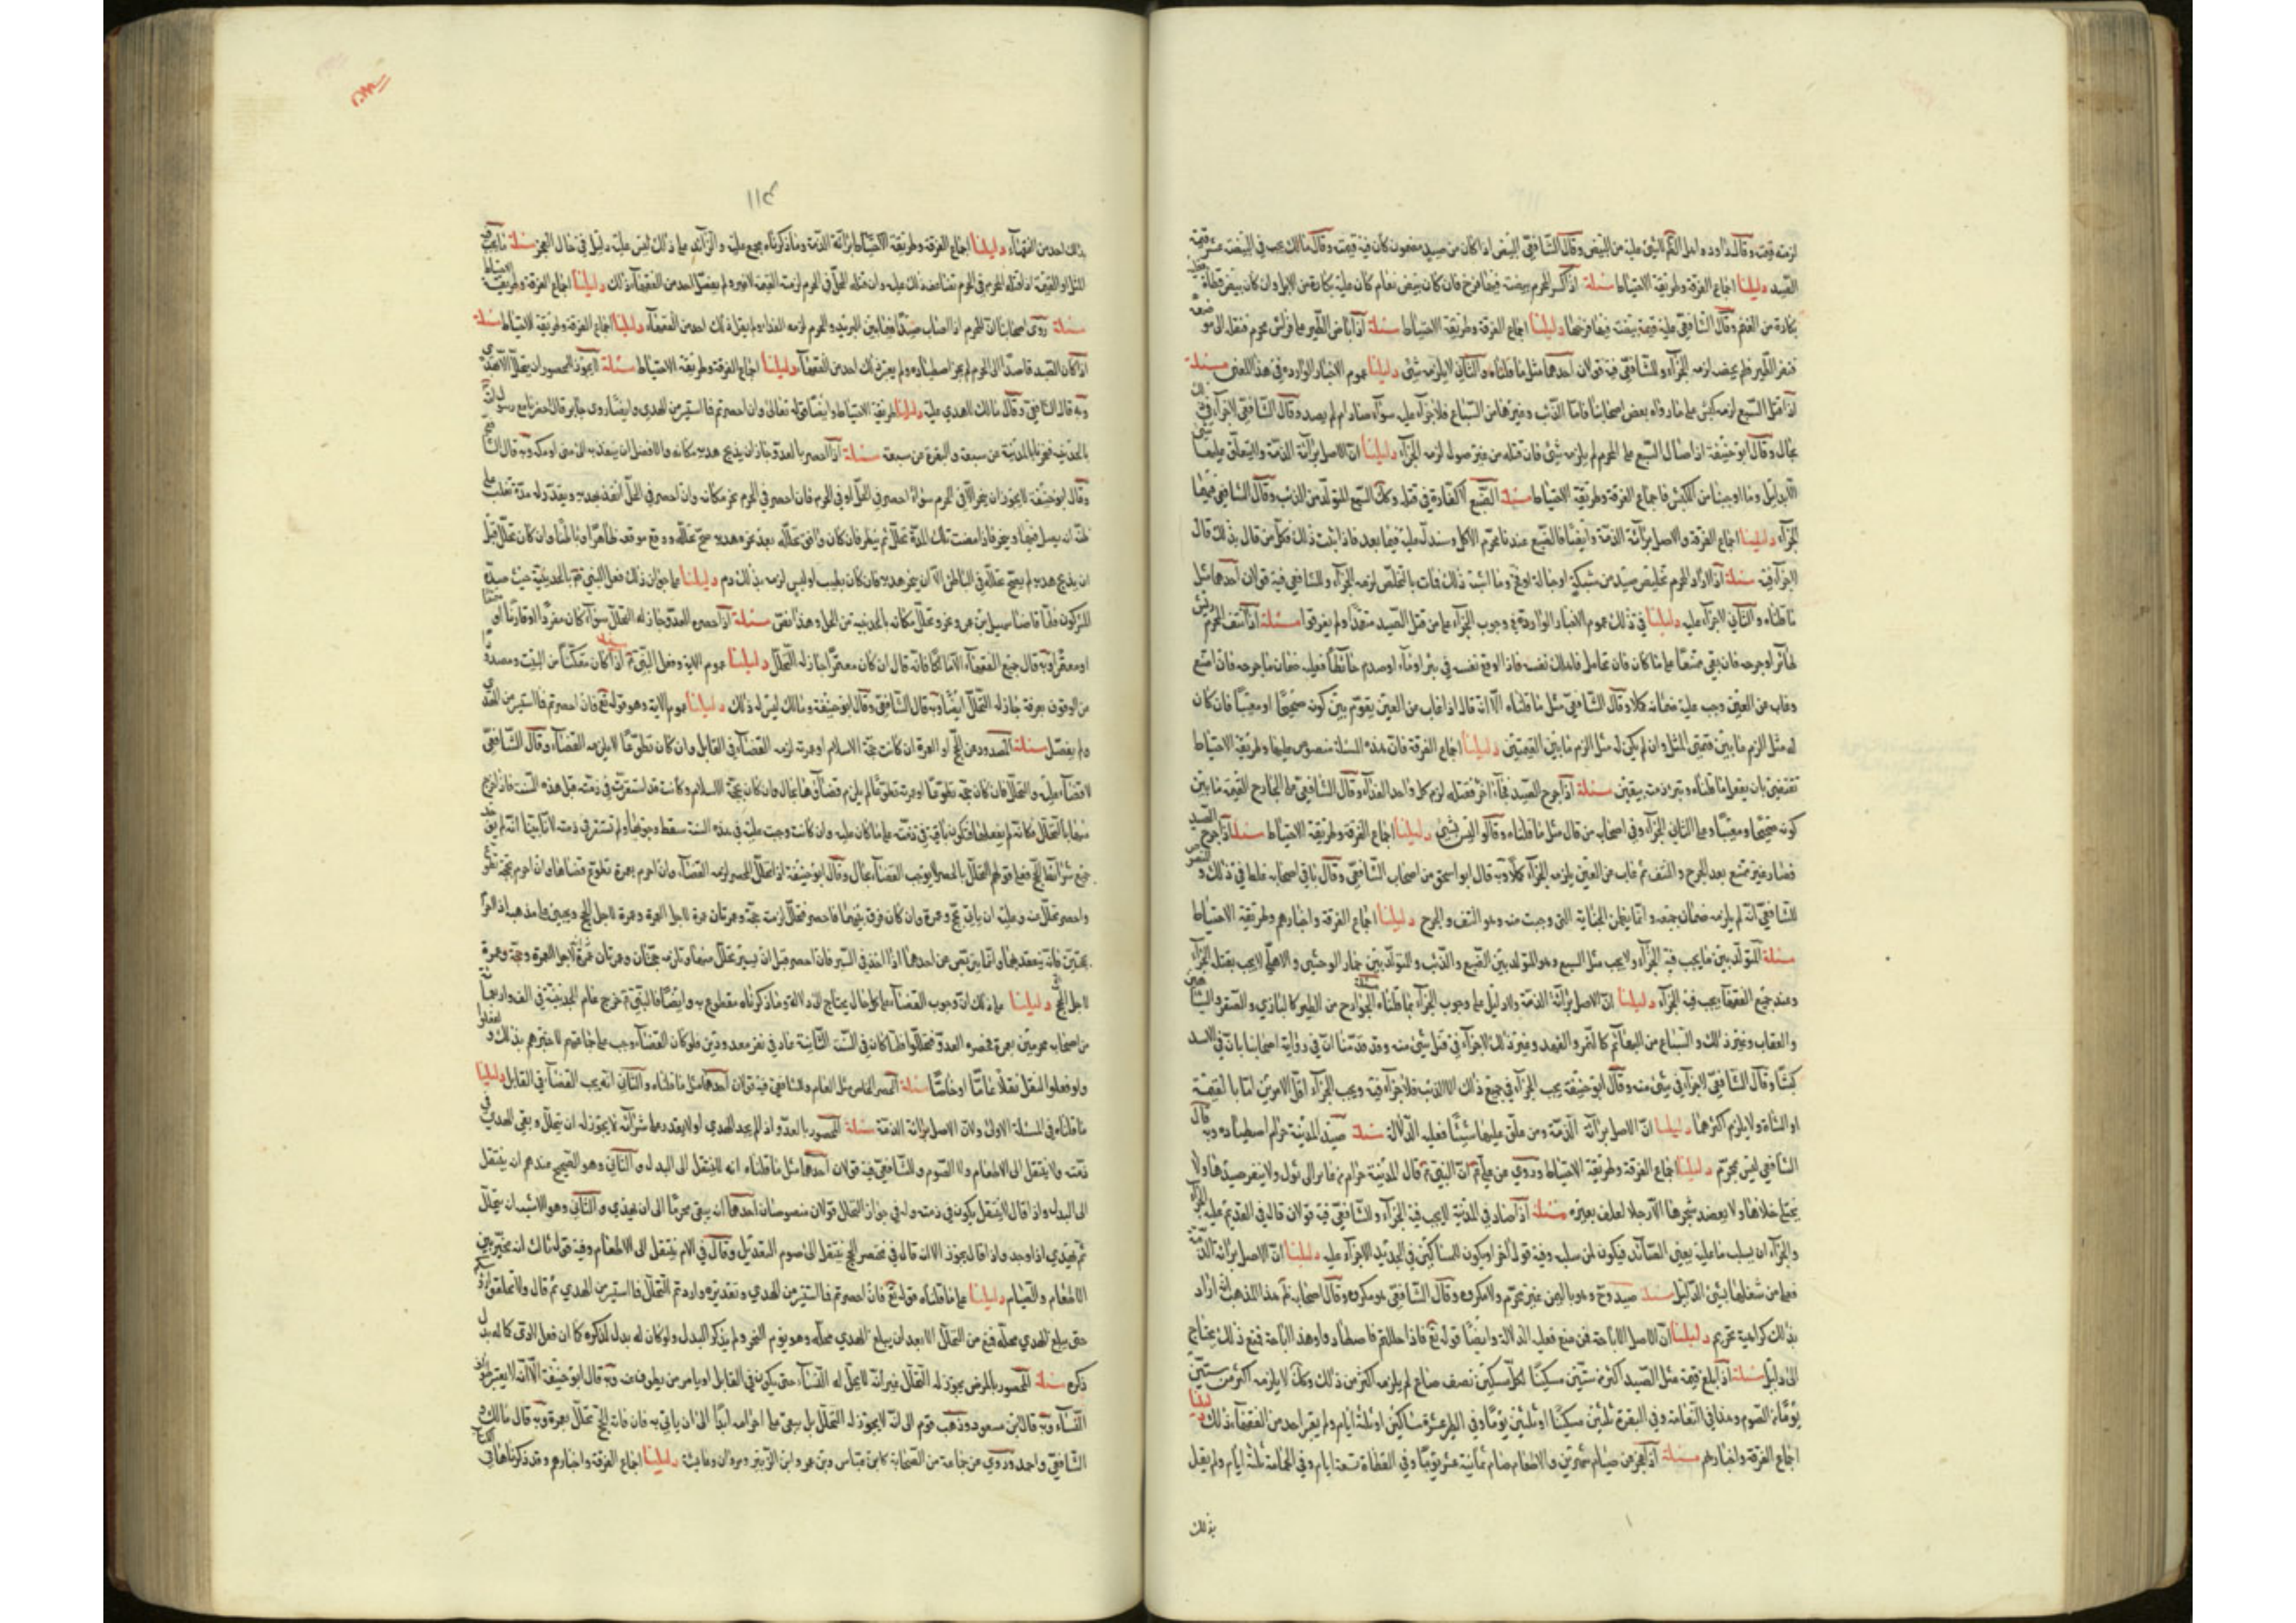 لزمته قيمته وقال داود واهل الظاهر لا شئ عليه من البيض وقال الشافعي البيض اذا كان من صيد مضمون كان فيه قيمته وقال مالك يجب في البيضة عشر قيمة
الصيد دليلنا اجماع الفرقة وطريقة الاحتياط مسئلة اذا كسر المحرم بيضة فيها فرخ فان كان بيض نعام كان عليه بكارة من الابل وان كان بيض قطاة فعليه
بكارة من الغنم وقال الشافعي عليه قيمة بيضة فيها فرخها دليلنا اجماع الفرقة وطريقة الاحتياط مسئلة اذا باض الطير على فراش محرم فنقله الى موضعه
فنفر الطير فلم يحضنه لزمه الجزآء وللشافعي فيه قولان احدهما مثل ما قلناه والثاني لا يلزمه شئ دليلنا عموم الاخبار الواردة في هذا المعنى مسئلة
اذا قتل السبع لزمه كبش على ما رواه بعض اصحابنا فاما الذئب وغيره من السباع فلا جزآء عليه سوآء صال او لم يصل وقال الشافعي لا جزآء في ذلك
بحال وقال ابو حنيفة اذا صال السبع على المحرم لم يلزمه شئ فان قتله من غير صول لزمه الجزآء دليلنا ان الاصل برآءة الذمة ولا يتعلق عليها شئ
الا بدليل وما اوجبنا من الكبش فاجماع الفرقة وطريقة الاحتياط مسئلة الضبع لا كفارة في قتله وكذا السبع المتولد من الذئب وقال الشافعي فيهما
الجزآء دليلنا اجماع الفرقة والاصل برآءة الذمة وايضا فالضبع عندنا محرم الاكل وسندل عليه فيما بعد فاذا ثبت ذلك فكل من قال بذلك قال
لا جزآء فيه مسئلة اذا اراد المحرم تخليص صيد من شبكة او حبالة او فخ وما اشبه ذلك فمات بالتخليص لزمه الجزآء وللشافعي فيه قولان احدهما مثل
ما قلناه والثاني لا جزآء عليه دليلنا في ذلك عموم الاخبار الواردة في وجوب الجزآء على من قتل الصيد متعمدا ولم يفرقوا مسئلة اذا نتف المحرم ريش
طائر او جرحه فان بقي ممتنعا على ما كان فان تحامل فاهلك نفسه فاذا وقع نفسه في بئر او مآء او صدم حائطا فعليه ضمان ما جرحه فان امتنع
وغاب عن العين وجب عليه ضمانه كلا وقال الشافعي مثل ما قلناه الا انه قال اذا غاب من العين يقوم بين كونه صحيحا او معيبا فان كان
له مثل الزم ما بين قيمتي المثل وان لم يكن له مثل الزم ما بين القيمتين دليلنا اجماع الفرقة فان هذه المسئلة منصوص عليها وطريقة الاحتياط
تقتضي بان يفعل ما قلناه وتبرء ذمته بيقين مسئلة اذا جرح الصيد فجآء اخر فقتله لزم كل واحد الفدآء وقال الشافعي على الجارح القيمة ما بين
كونه صحيحا ومعيبا وعلى الثاني الجزآء وفي اصحابه من قال مثل ما قلناه وقالوا ليس بشئ دليلنا اجماع الفرقة وطريقة الاحتياط مسئلة اذا جرح الصيد
فصار غير ممتنع بعد الجرح والنتف ثم غاب من العين يلزمه الجزآء كملا وبه قال ابو اسحق من اصحاب الشافعي وقال باقي اصحابه غلط في ذلك والنص
للشافعي انه لم يلزمه ضمان جميعه وانما يضمن الجناية التي وجبت منه وهو النتف والجرح دليلنا اجماع الفرقة واخبارهم وطريقة الاحتياط
مسئلة المتولد بين ما يجب فيه الجزآء ولا يجب مثل السبع وهو المتولد بين الضبع والذئب والمتولد بين حمار الوحشي والاهلي لا يجب بقتله الجزآء
وعند جميع الفقهآء يجب فيه الجزآء دليلنا ان الاصل برآءة الذمة ولا دليل على وجوب الجزآء بما قلناه مسئلة الجوارح من الطير كالبازي والصقر والشاهين
والعقاب وغير ذلك والسباع من البهائم كالنمر والفهد وغير ذلك لا جزآء في قتل شئ منه وقد قدمنا ان في رواية اصحابنا بان في الاسد
كبشا وقال الشافعي لا جزآء في شئ منه وقال ابو حنيفة يجب الجزآء في جميع ذلك الا الذئب فلا جزآء فيه ويجب الجزآء اقل الامرين اما بالقيمة
او الشاة ولا يلزم اكثرهما دليلنا ان الاصل برآءة الذمة ومن علق عليها شيئا فعليه الدلالة مسئلة صيد المدينة حرام اصطياده وبه قال
الشافعي ليس بمحرم دليلنا اجماع الفرقة وطريقة الاحتياط وروي عن علي ع ان النبي ص قال المدينة حرام من عاير الى ثور لا ينفر صيدها ولا
يختلى خلاها ولا يعضد شجرها الا رجلا لعلف بعيره مسئلة اذا صاد في المدينة لا يجب فيه الجزآء وللشافعي فيه قولان قال في القديم عليه الجزآء
والجزآء ان يسلب ما عليه يعني الصائد فيكون لمن سلبه وفيه قول آخر ويكون للمساكين في الجديد لا جزآء عليه دليلنا ان الاصل برآءة الذمة
فعلى من شغلها بشئ الدليل مسئلة صيد وج وهو بلد باليمن غير محرم ولا مكروه وقال الشافعي هو مكروه وقال اصحابه ثم هذا المذهب انه اراد
بذلك كراهية تحريم دليلنا ان الاصل الاباحة فمن منع فعليه الدلالة وايضا قوله تع فاذا حللتم فاصطادوا وهذه اباحة فمنع ذلك يحتاج
الى دليل مسئلة اذا بلغ قيمة مثل الصيد اكثر من ستين مسكينا لكل مسكين نصف صاع لم يلزمه اكثر من ذلك وكذا لا يلزمه اكثر من ستين
يوما من الصوم وهذا في النعامة وفي البقرة ثلثين مسكينا او ثلثين يوما وفي الظبي عشرة مساكين او ثلثة ايام ولم يقر احد من الفقهآء ذلك دليلنا
اجماع الفرقة واخبارهم مسئلة اذا عجز عن صيام شهرين والاطعام صام ثمانية عشر يوما وفي القطاة تسعة ايام وفي الحمامة ثلثة ايام ولم يقل
بذلك
١١٤
بذلك احد من الفقهآء دليلنا اجماع الفرقة وطريقة الاحتياط برآءة الذمة وما ذكرناه مجمع عليه والزآئد على ذلك ليس عليه دليل في حال العجز مسئلة ما يجب فيه
المثل او القيمة اذا قتله المحرم في الحرم تضاعف ذلك عليه وان قتله المحل في الحرم لزمته القيمة لا غير ولم يفصل احد من الفقهآء ذلك دليلنا اجماع الفرقة وطريقة الاحتياط
مسئلة روى اصحابنا ان المحرم اذا اصاب صيدا فيما بين البريد والحرم لزمه الفدآء ولم يقل ذلك احد من الفقهآء دليلنا اجماع الفرقة وطريقة الاحتياط مسئلة
اذا كان الصيد قاصدا الى الحرم لم يجز اصطياده ولم يعتبر ذلك احد من الفقهآء دليلنا اجماع الفرقة وطريقة الاحتياط مسئلة لا يجوز للمحصور ان يتحلل الا بهدي
وبه قال الشافعي وقال مالك لا هدي عليه دليلنا طريقة الاحتياط وايضا قوله تعالى وان احصرتم فما استيسر من الهدي وايضا روى جابر قال احصرنا مع رسول الله
بالحديبية فنحرنا البدنة عن سبعة والبقرة عن سبعة مسئلة اذا احصر بالعدو جاز ان يذبح هديه مكانه والافضل ان ينفذ به الى منى او مكة وبه قال الشافعي
وقال ابو حنيفة لا يجوز ان ينحر الا في الحرم سوآء احصر في الحل او في الحرم فان احصر في الحرم نحر مكانه وان احصر في الحل انفذ بهديه ويقدر له مدة تغلب على
ظنه انه يصل فيها وينحر فاذا مضت تلك المدة تحلل ثم ينظر فان كان وافق تحلله بعد نحر هديه صح تحلله ووقع موقعه ظاهرا وباطنا وان كان تحلل قبل
ان يذبح هديه لم يصح تحلله في الباطن الا ان ينحر هديه فان كان تطيب او لبس لزمه بذلك دم دليلنا على جواز ذلك فعل النبي ص بالحديبية حيث صده
المشركون فلما قاضاه سهيل بن عمرو نحر وتحلل مكانه بالحديبية من الحل وهذا نص مسئلة اذا احصره العدو جاز له التحلل سوآء كان مفردا او قارنا او متمتعا
او معتمرا وبه قال جميع الفقهآء الا مالكا فانه قال ان كان معتمرا لا يجاز له التحلل دليلنا عموم الاية وفعل النبي ص مسئلة اذا كان متمكنا من البيت ومصدودا
من الوقوف بعرفة جاز له التحلل ايضا وبه قال الشافعي وقال ابو حنيفة ومالك ليس له ذلك دليلنا عموم الاية وهو قوله تع فان احصرتم فما استيسر من الهدي
ولم يفصل مسئلة المصدود عن الحج او العمرة ان كانت حجة الاسلام او عمرته لزمه القضآء في القابل وان كان تطوعا لا يلزمه القضآء وقال الشافعي
لا قضآء عليه والتحلل فان كان حجة تطوعا او عمرة تطوعا لم يلزم قضآؤها بحال وان كان حجة الاسلام وكانت قد استقرت في ذمته قبل هذه السنة فاذا خرج
منها بالتحلل فكانه لم يفعلها فيكون باقي في ذمته على ما كان عليه وان كانت وجبت عليه في هذه السنة سقط وجوبها ولم تستقر في ذمته لانا تبينا انه لم يوجد
جميع شرائط الحج فعلى قولهم التحلل بالحصر لا يوجب القضآء بحال وقال ابو حنيفة اذا تحلل المحصر لزمه القضآء وان احرم بعمرة تطوع قضاها وان احرم بحجة تطوع
واحصر تحلل منه وعليه ان ياتي بحج وعمرة وان كان قرن بينهما فاحصر فتحلل لزمته حجة وعمرتان عمرة لاجل العمرة وعمرة لاجل الحج ويجئ على مذهبه اذا احرم
بحجتين فانه ينعقد بهما وانما يرتفض عن احدهما اذا اخذ في السير فان احصر قبل ان يسير تحلل منهما ولزمه حجتان وعمرتان عمرة لاجل العمرة وحجة وعمرة
لاجل الحج دليلنا على ذلك ان وجوب القضآء على كل حال يحتاج الى دلالة وما ذكرناه مقطوع به وايضا فالنبي ص خرج عام الحديبية في الف واربعمائة
من اصحابه محرمين بعمرة فحصره العدو فتحللوا فلما كان في السنة الثانية عاد في نفر معدودين فلو كان القضآء وجب على جماعتهم لاخبرهم بذلك ولفعلوا
ولو فعلوا لنقل نقلا عاما او خاصا مسئلة الحصر الخاص مثل العام والشافعي فيه قولان احدهما مثل ما قلناه والثاني انه يجب القضآء في القابل دليلنا
ما قلناه في المسئلة الاولى ولان الاصل برآءة الذمة مسئلة المحصور بالعدو اذا لم يجد الهدي او لا يقدر على شرآئه لا يجوز له ان يتحلل ويبقى الهدي في
ذمته ولا ينتقل الى الاطعام ولا الصوم وللشافعي فيه قولان احدهما مثل ما قلناه انه لا ينتقل الى البدل والثاني وهو الصحيح عندهم انه ينتقل
الى البدل واذا قال لا ينتقل يكون في ذمته وله في جواز التحلل قولان منصوصان احدهما ان يبقى محرما الى ان يهدي والثاني وهو الاشبه انه يتحلل
ثم يهدي اذا وجد واذا قال يجوز الانتقال قال في مختصر الحج ينتقل الى صوم التعديل وقال في الام ينتقل الى الاطعام وفيه قول ثالث انه مخير بين
الاطعام والصيام دليلنا على ما قلناه قوله تع فان احصرتم فما استيسر من الهدي وتقديره واردتم التحلل فما استيسر من الهدي ثم قال ولا تحلقوا رؤوسكم
حتى يبلغ الهدي محله فمنع من التحلل الا بعد ان يبلغ الهدي محله وهو يوم النحر ولم يذكر البدل ولو كان له بدل لذكره كما ان فعل الاذى كما له بدل
ذكره مسئلة المحصور بالمرض يجوز له التحلل غير انه لا يحل له النسآء حتى يطوف في القابل او يامر من يطوف عنه وبه قال ابو حنيفة الا انه لا يعتبر طواف
النسآء وبه قال ابن مسعود وذهب قوم الى انه لا يجوز له التحلل بل يبقى على احرامه ابدا الى ان ياتي به فان فاته الحج تحلل بعمرة وبه قال مالك و
الشافعي واحمد وروي عن جماعة من الصحابة كابن عباس وبن عمر وابن الزبير ومروان وعايشة دليلنا اجماع الفرقة واخبارهم وقد ذكرناها في الكتاب